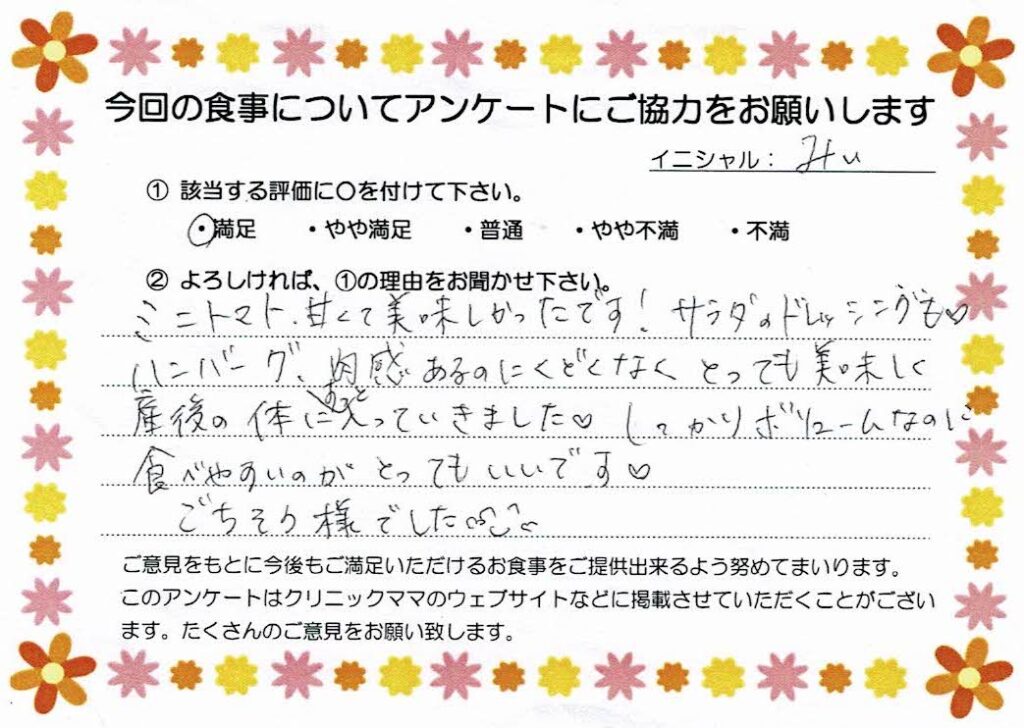 今回の食事についてアンケートにご協力をお願いします
イニシャル: みぃ
① 該当する評価に○を付けて下さい。
・満足 ・やや満足 ・普通 ・やや不満 ・不満
② よろしければ、①の理由をお聞かせ下さい。
ミニトマト、甘くて美味しかったです!サラダのドレッシングも♡
ハンバーグ、肉感あるのにくどくなくとっても美味しく
産後の体にすっと入っていきました♡しっかりボリュームなのに
食べやすいのがとってもいいです♡
ごちそう様でした
ご意見をもとに今後もご満足いただけるお食事をご提供出来るよう努めてまいります。
このアンケートはクリニックママのウェブサイトなどに掲載させていただくことがござい
ます。たくさんのご意見をお願い致します。